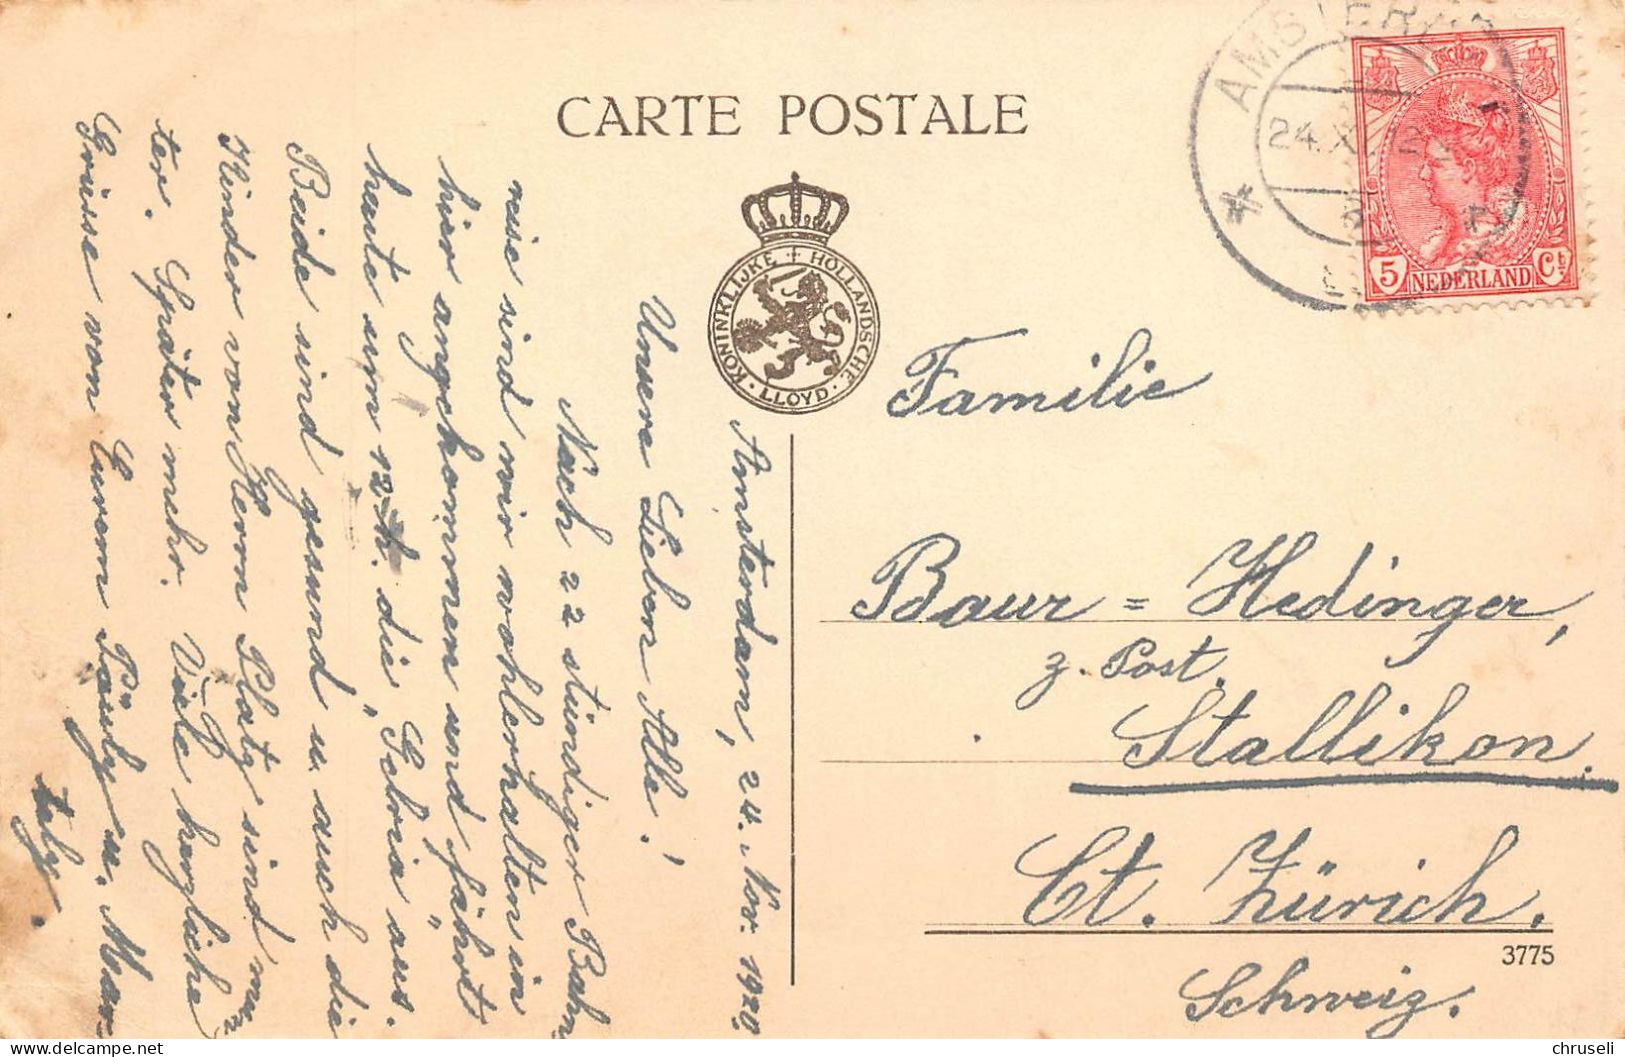 CARTE POSTALE
AMSTERD
24.XI
5 NEDERLAND Ct
KONINKLIJKE HOLLANDSCHE LLOYD
Amsterdam, 24. Nov. 1920
Unsere Lieben Alle!
Nach 22 stündiger Bahn
reise sind wir wohlerhalten in
hier angekommen und fährt
heute um 12 h. die „Gelria" aus.
Beide sind gesund u. auch die
Kinder von Herrn Platz sind mun
ter. Später mehr. Viele herzliche
Grüsse von Eurem Päuly u. Mar-
taly.
Familie
Baur = Hedinger,
z. Post.
Stallikon.
Ct. Zürich.
3775
Schweiz.
chruseli